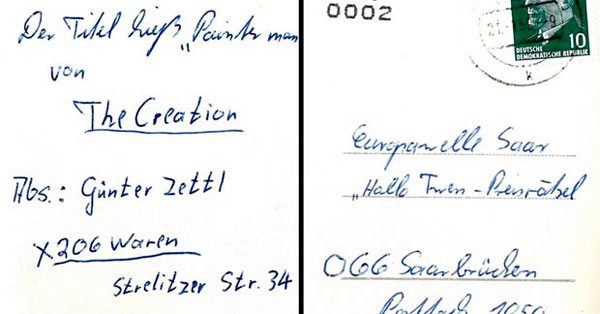 Der Titel hieß „Painter man
von
The Creation
Abs.: Günter Zettl
X206 Waren
Strelitzer Str. 34
0002
10
DEUTSCHE
DEMOKRATISCHE REPUBLIK
Europawelle Saar
„Hallo Twen-Preisrätsel
066 Saarbrücken
Postfach 1050